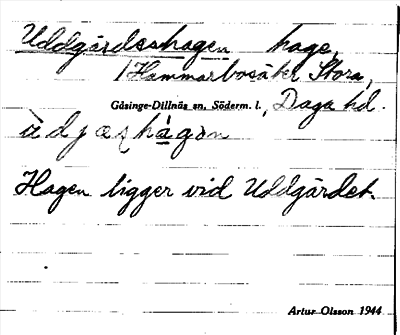 Uddgärdeshagen hage,
/Hammarbosäter Stora,
Gåsinge-Dillnäs sn, Söderm. l., Daga hd.
Hagen ligger vid Uddgärdet.
Artur Olsson 1944